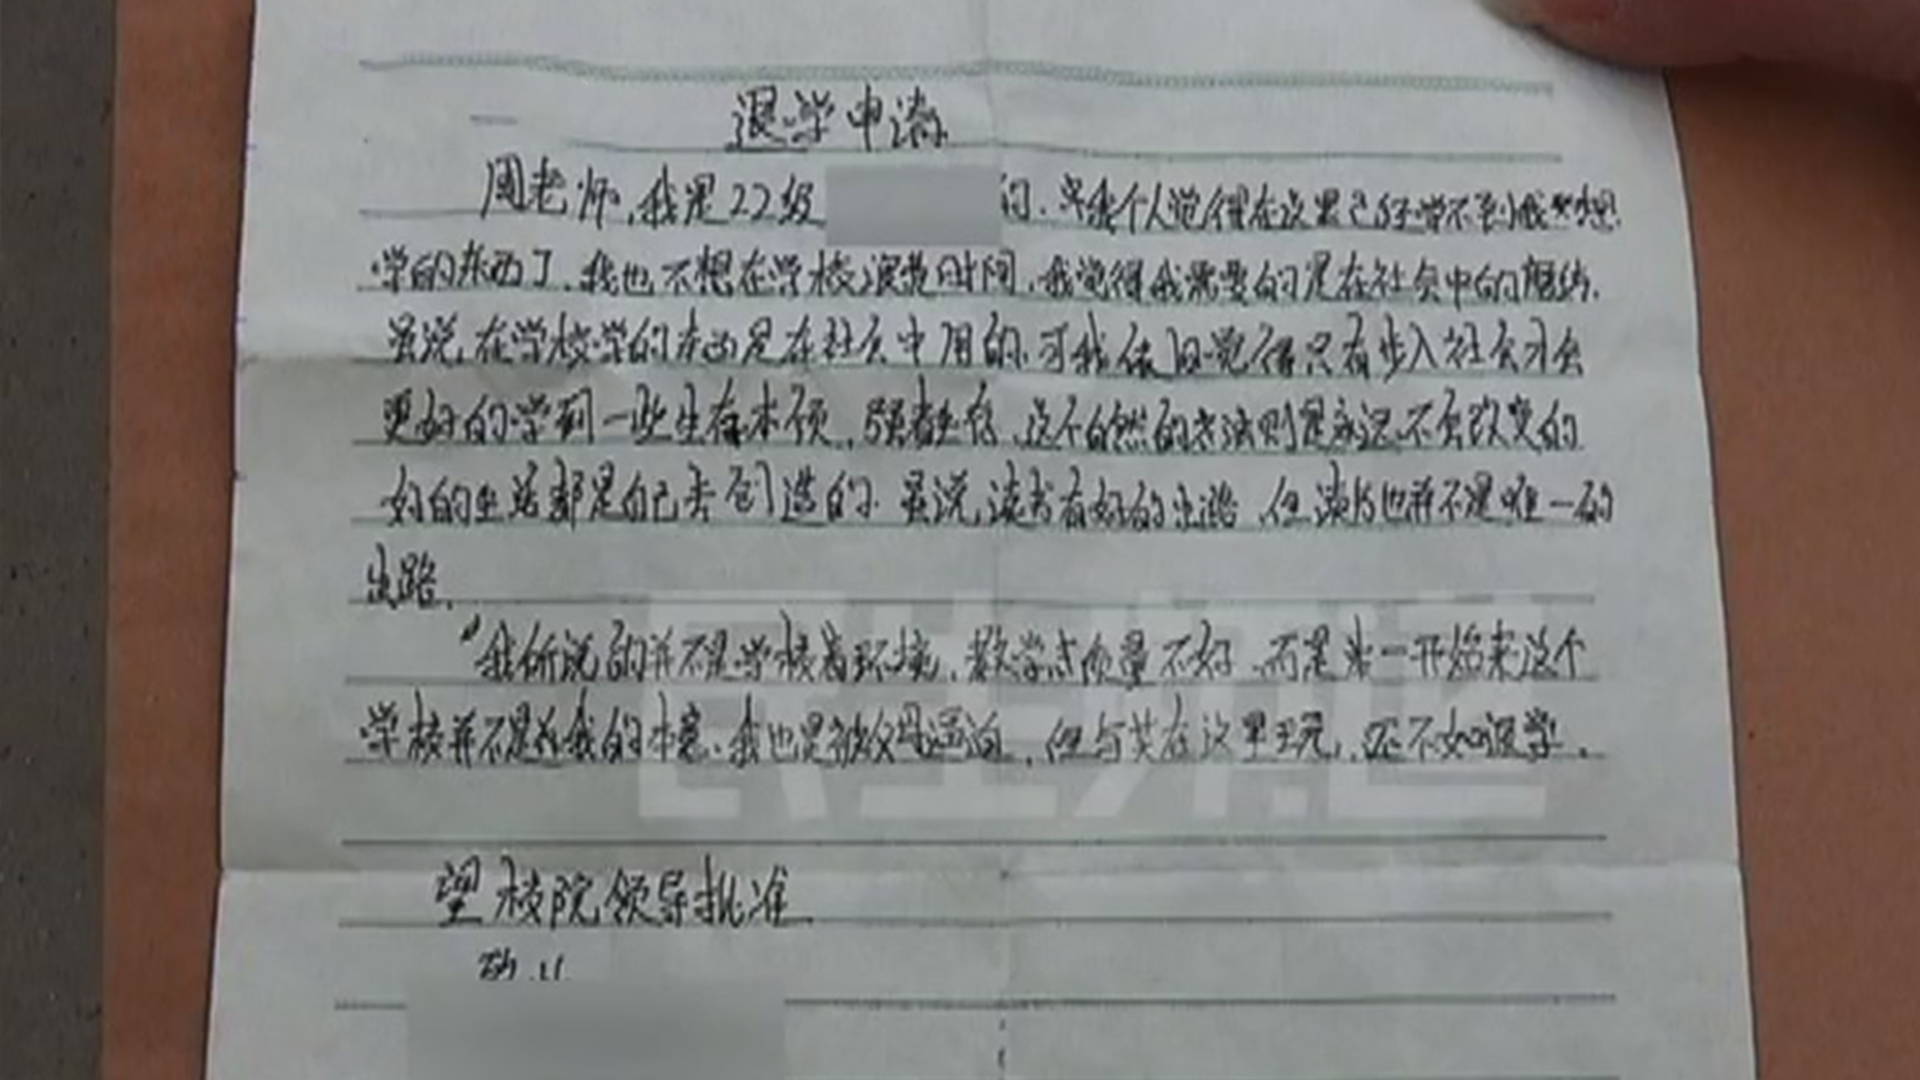 退学申请
周老师,我是22级 的、我个人觉得在这里已经学不到我想
学的东西了、我也不想在学校浪费时间,我觉得我需要的是在社会中的磨练,
虽说,在学校学的东西是在社会中用的,可我依旧觉得只有步入社会才会
更好的学到一些生存本领,强者生存、这个自然的法则是永远不会改变的
好的生活都是自己去创造的.虽说,读书有好的出路,但读书也并不是唯一的
出路.
我所说的并不是学校环境,教学质量不好,而是当一开始来这个
学校并不是我的本意、我也是被父母逼迫,但与其在这里玩,还不如退学.
望校院领导批准
民生频道